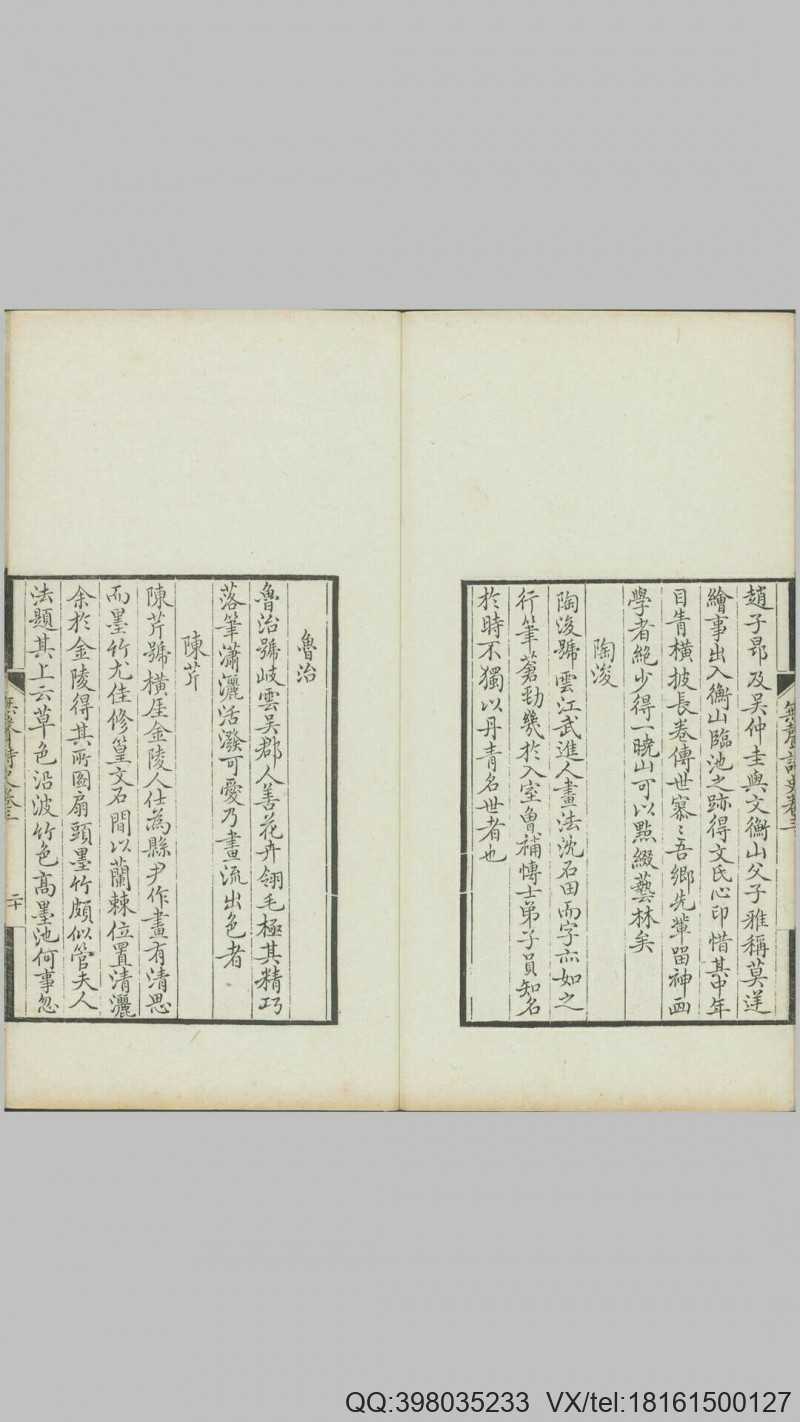 趙子昂及吴仲圭與文衡山父子雅稱莫逆
繪事出入衡山臨池之跡得文氏心印惜其中年
目眚橫披長卷傳世寥〻吾鄉先輩留神画
學者絕少得一曉山可以點綴藝林矣
陶浚
陶浚號雲江武進人畫法沈石田而字亦如之
行筆蒼勁幾於入室魯補博士弟子員知名
於時不獨以丹青名世者也
無聲詩史卷三
魯治
魯治號岐雲吴郡人善花卉翎毛極其精巧
落筆瀟灑活潑可愛乃畫流出色者
陳芹
陳芹號橫厓金陵人仕為縣尹作畫有清思
而墨竹尤佳修篁文石間以蘭棘位置清灑
余於金陵得其所圖扇頭墨竹頗似管夫人
法題其上云草色沿波竹色高墨池何事忽
二十
QQ:398035233 VX/tel:18161500127